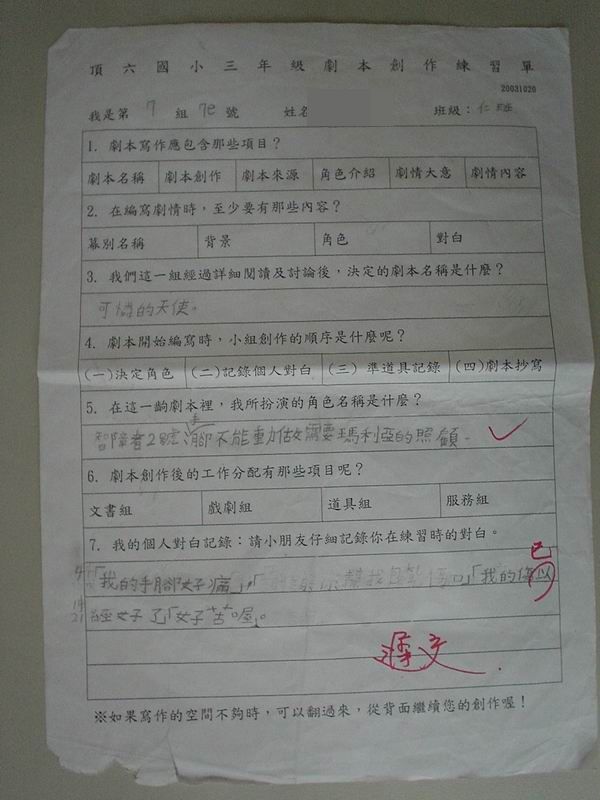 頂六國小三年級劇本創作練習單
20031020
我是第 7 組 7e 號 姓名 班級：仁班
1. 劇本寫作應包含那些項目？
劇本名稱 劇本創作 劇本來源 角色介紹 劇情大意 劇情內容
2. 在編寫劇情時，至少要有那些內容？
幕別名稱 背景 角色 對白
3. 我們這一組經過詳細閱讀及討論後，決定的劇本名稱是什麼？
可憐的天使。
4. 劇本開始編寫時，小組創作的順序是什麼呢？
(一)決定角色 (二)記錄個人對白 (三) 準道具記錄 (四)劇本抄寫
5. 在這一齣劇本裡，我所扮演的角色名稱是什麼？
手
智障者2號 腳不能動做需要瑪利亞的照顧。
6. 劇本創作後的工作分配有那些項目呢？
文書組 戲劇組 道具組 服務組
7. 我的個人對白記錄：請小朋友仔細記錄你在練習時的對白。
已
「我的手腳好痛」，「 幫我包 傷口」「我的傷以
經好了」「好苦喔」。
※如果寫作的空間不夠時，可以翻過來，從背面繼續您的創作喔！